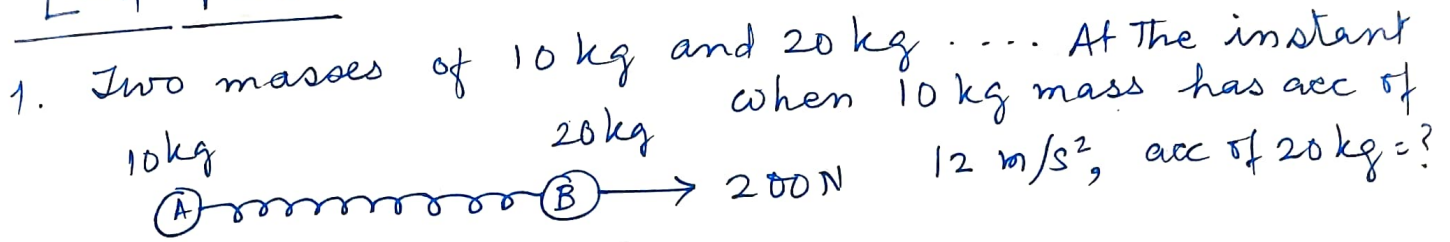 1. Two masses of 10 kg and 20 kg .... At The instant
when 10 kg mass has acc of
12 m/s², acc of 20 kg = ?
10kg
20kg
A
B
200N